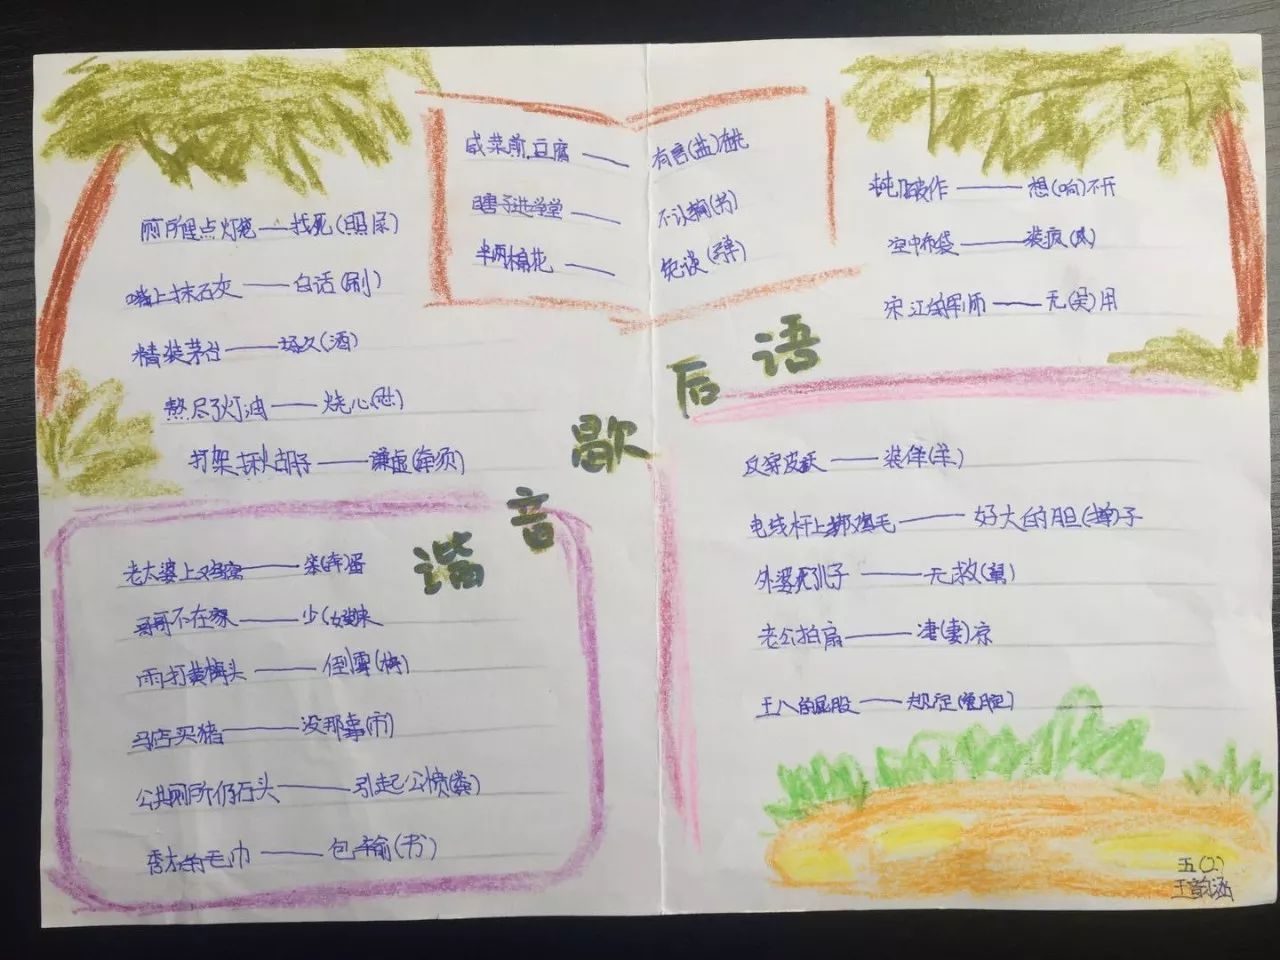 厕所里点灯笼——找死(照屎)
嘴上抹石灰——白话(刷)
精装茅台——场久(酒)
熬尽了灯油——烧心(芯)
打架揪胡子——谦虚(牵须)
咸菜煎豆腐——有言(盐)在
瞎子进学堂——不认输(书)
半两棉花——免谈(弹)
作——想(响)不开
空中布袋——装疯(风)
宋江的军师——无(吴)用
谐音歇后语
老太婆上鸡窝——笨(奔)蛋
哥哥不在家——少(嫂)来
雨打黄梅头——倒霉(梅)
马店买猪——没那事(市)
公共厕所仍石头——引起公愤(粪)
秀才的毛巾——包输(书)
反穿皮袄——装佯(羊)
电线杆上绑鸡毛——好大的胆(掸)子
外婆死儿子——无救(舅)
老公拍扇——凄(妻)凉
王八的屁股——规定(龟腚)
五(2)
王韵涵